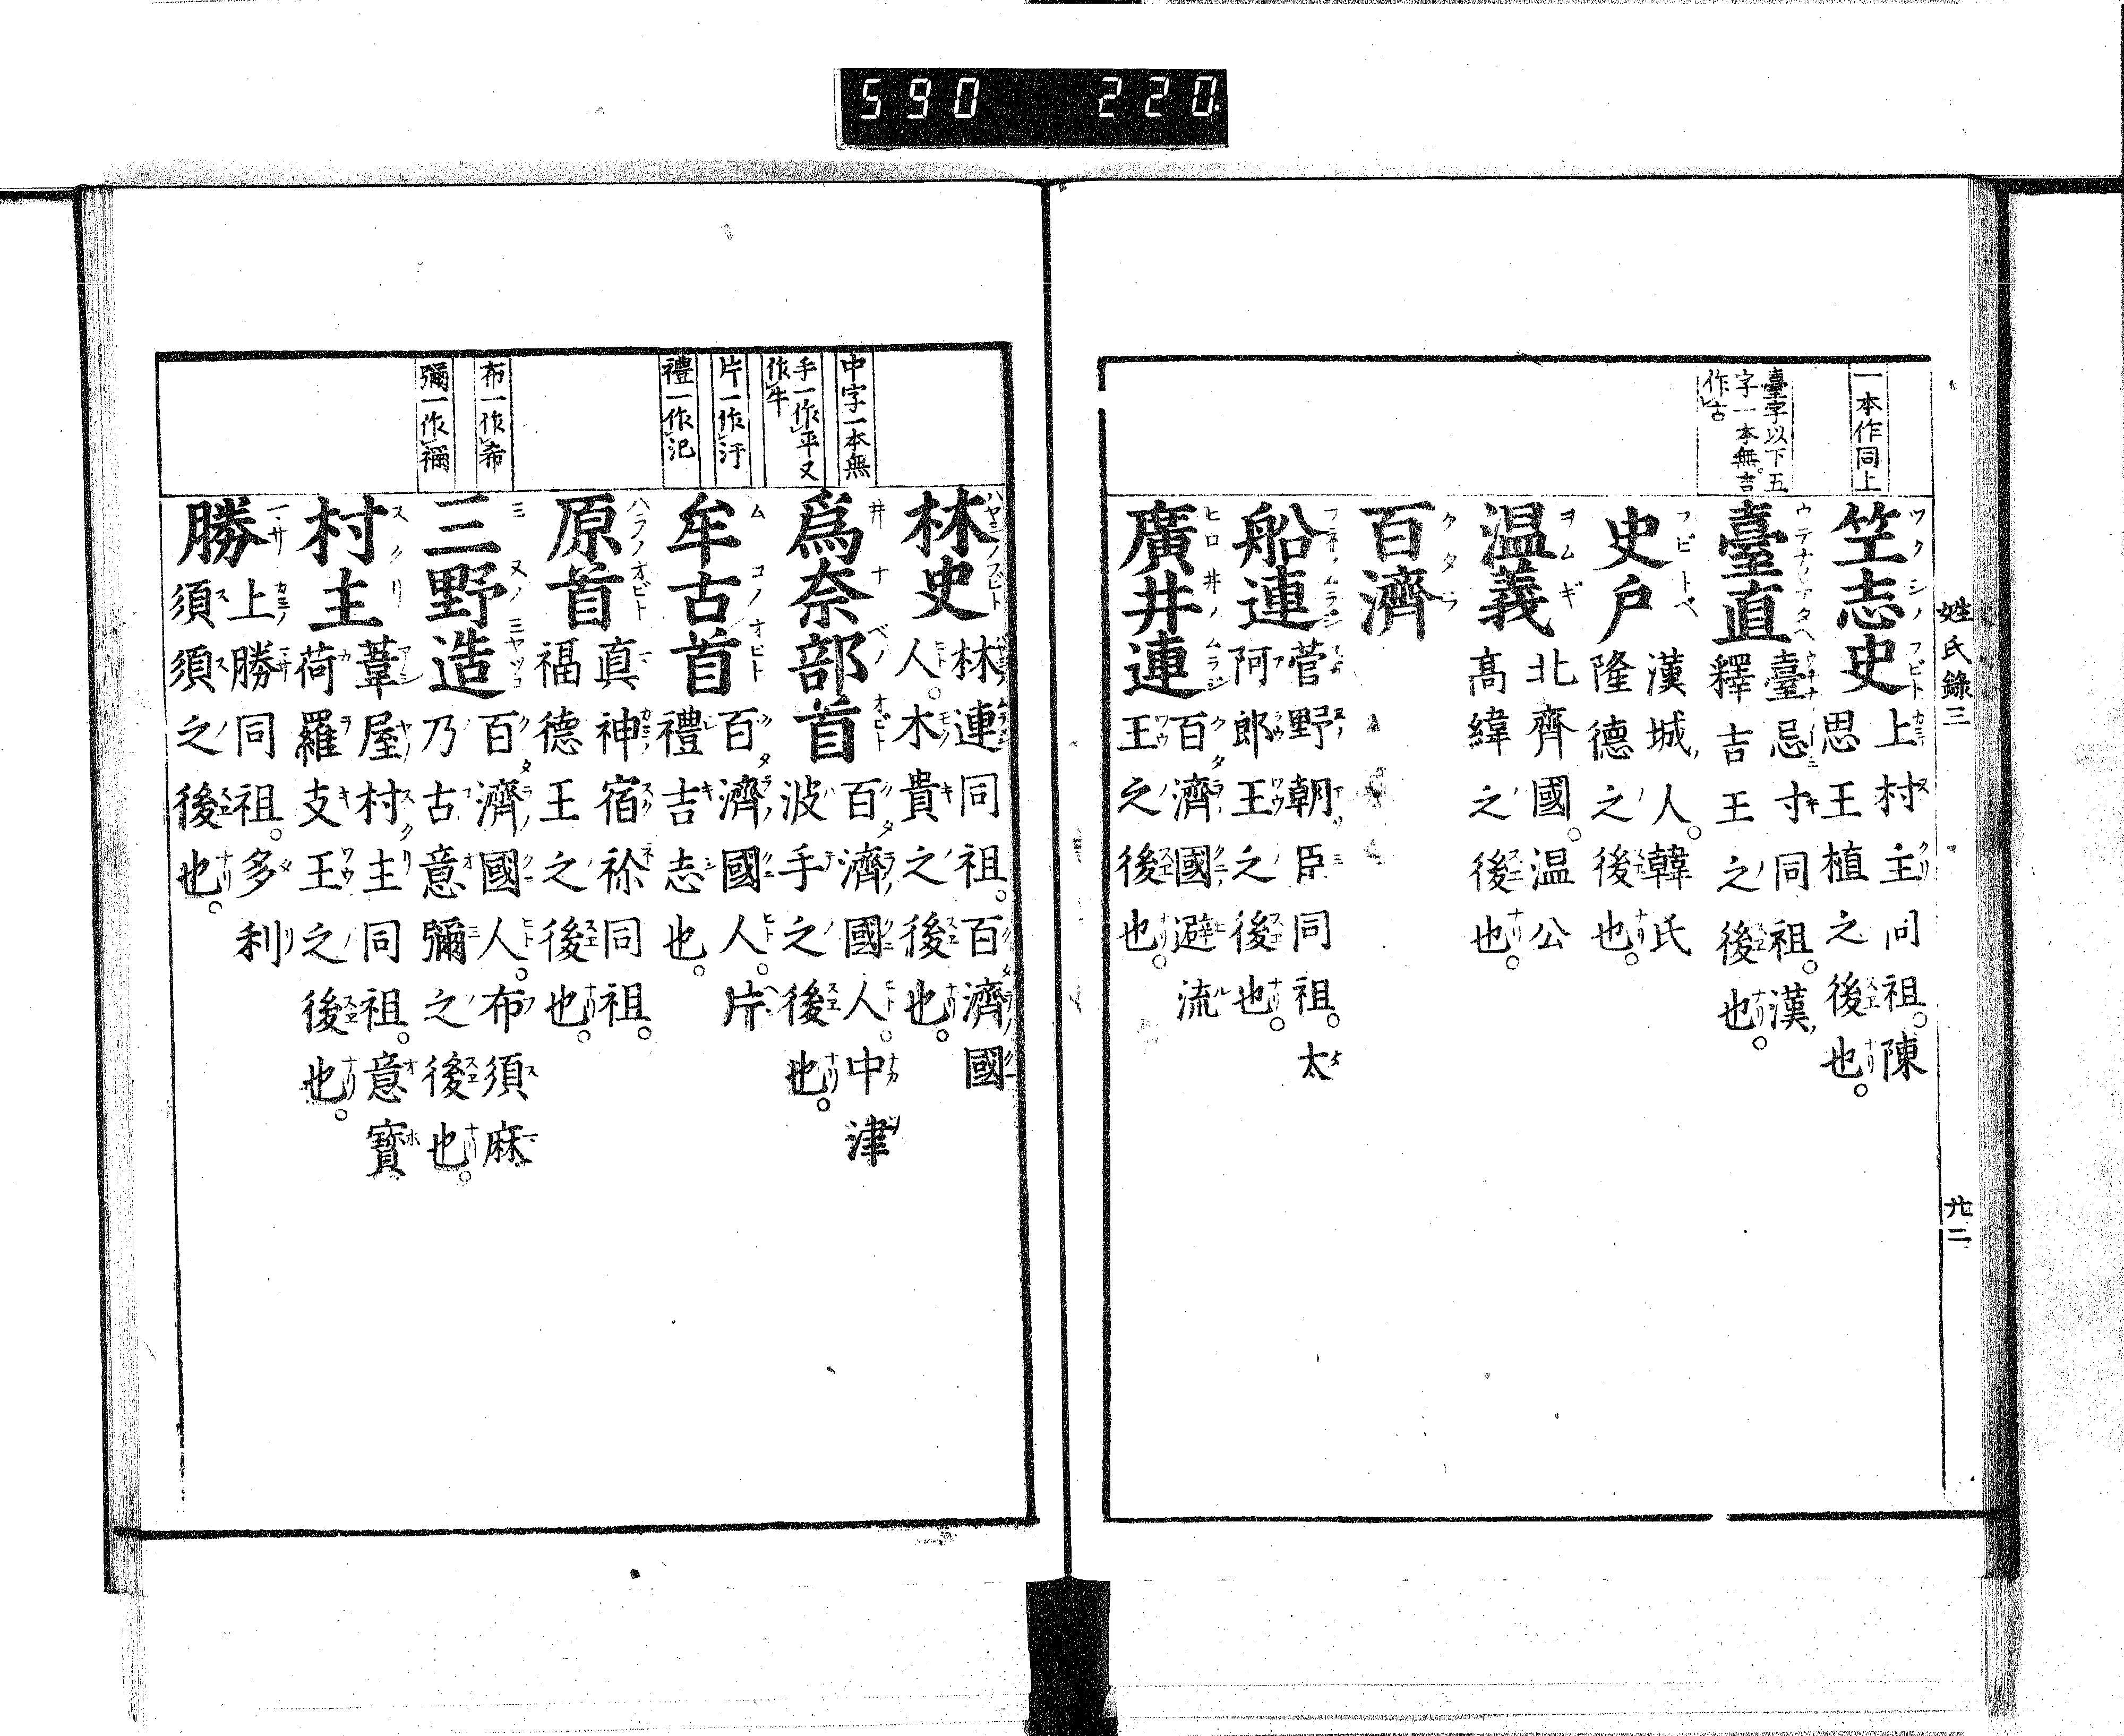 590 220
姓氏錄三
廿二
一本作同上
臺字以下五
字一本無。吉
作古
笁志史
上村主同祖。陳
思王植之後也。
臺直
臺忌寸同祖。漢
釋吉王之後也。
史戶
漢城人。韓氏
隆德之後也。
温義
北齊國。温公
高緯之後也。
百濟
船連
菅野朝臣同祖。太
阿郎王之後也。
廣井連
百濟國避流
王之後也。
中字一本無
手一作平又
作牛
片一作汙
禮一作汜
布一作希
彌一作禰
林史
林連同祖。百濟國
人。木貴之後也。
爲奈部首
百濟國人。中津
波手之後也。
牟古首
百濟國人。片
禮吉志也。
原首
真神宿祢同祖。
福德王之後也。
三野造
百濟國人。布須麻
乃古意彌之後也。
村主
葦屋村主同祖。意寶
荷羅支王之後也。
勝
上勝同祖。多利
須須之後也。